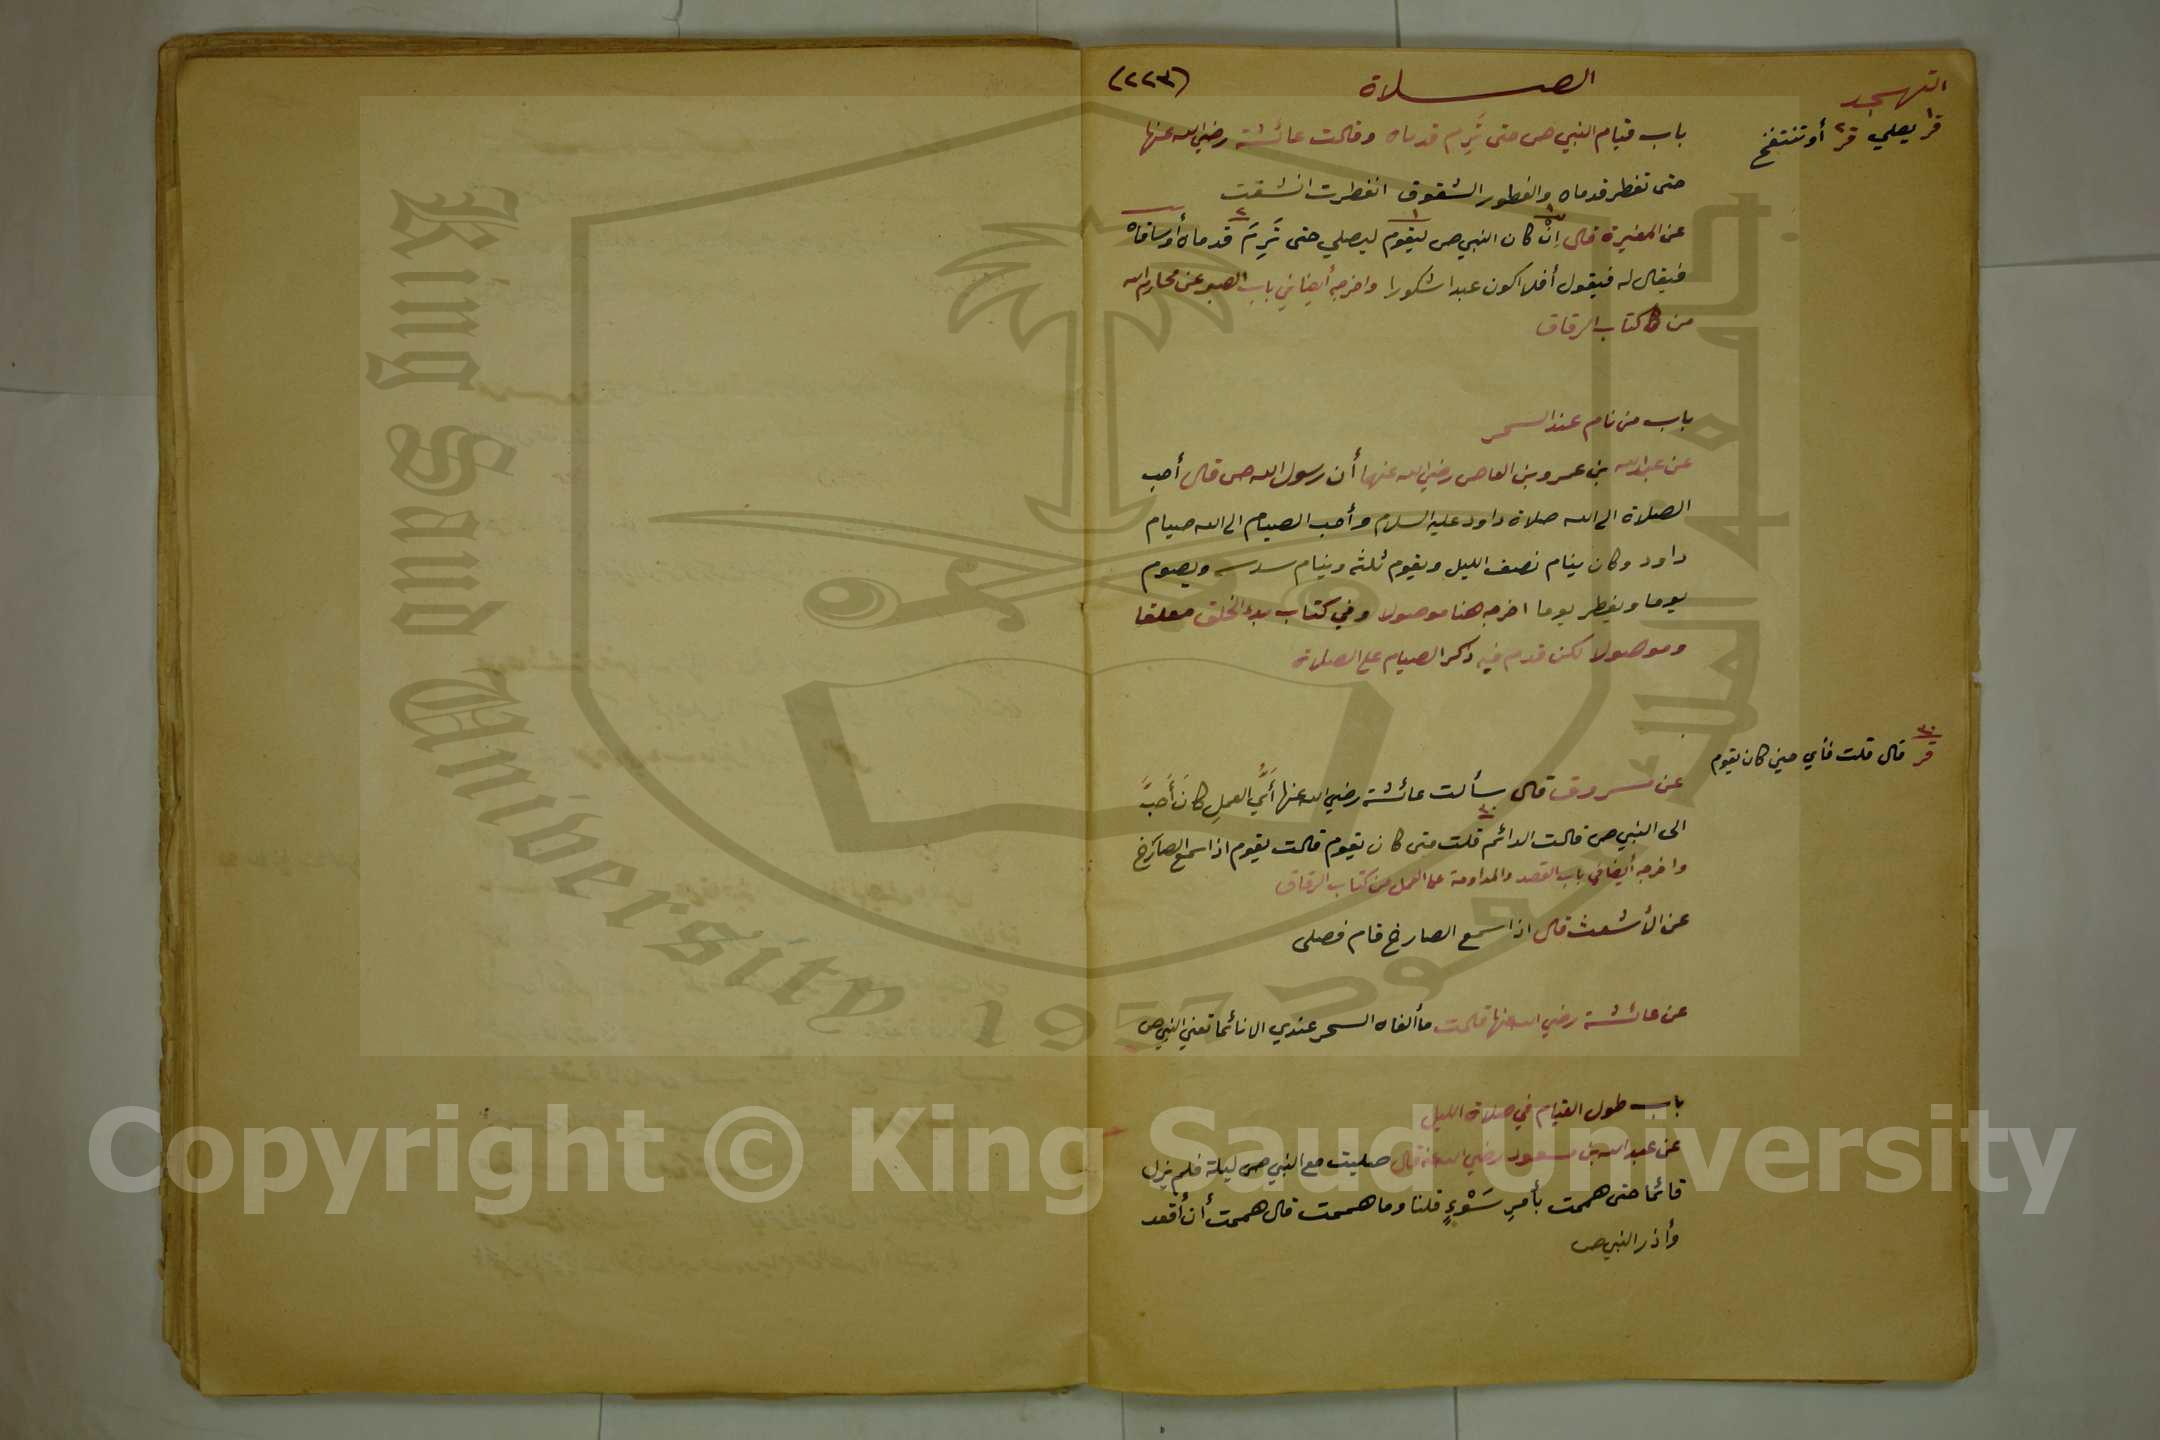 التهجد
الصلاة
(٢٢٣)
ق١ يصلي ق٢ أو تنتفخ
باب قيام النبي ص حتى تَرِم قدماه وقالت عائشة رضي الله عنها
حتى تفطر قدماه والفطور الشقوق انفطرت انشقت
عن المغيرة قال إنْ كان النبي ص ليقوم ليصلي حتى تَرِمَ قدماه أو ساقاه
فيقال له فيقول أفلا اكون عبدا شكورا واخرجه أيضا في باب الصبر عن محارم الله
من كتاب الرقاق
باب من نام عند السحر
عن عبد الله بن عمرو بن العاص رضي الله عنهما أن رسول الله ص قال أحب
الصلاة الى الله صلاة داود عليه السلام وأحب الصيام الى الله صيام
داود وكان ينام نصف الليل ويقوم ثلثه وينام سدسه ويصوم
يوما ويفطر يوما اخرجه هنا موصولا وفي كتاب بدء الخلق معلقا
وموصولا لكن قدم فيه ذكر الصيام على الصلاة
قر قال قلت فأي حين كان يقوم
عن مسروق قال سألت عائشة رضي الله عنها أَيُّ العملِ كانَ أَحَبَّ
الى النبي ص قالت الدائم قلت متى كان يقوم قالت يقوم اذا سمع الصارخ
واخرجه أيضا في باب القصد والمداومة على العمل من كتاب الرقاق
عن الأشعث قال اذا سمع الصارخ قام فصلى
عن عائشة رضي الله عنها قالت ما ألفاه السحر عندي الا نائما تعني النبي ص
باب طول القيام في صلاة الليل
عن عبد الله بن مسعود رضي الله عنه قال صليت مع النبي ص ليلة فلم يزل
قائما حتى هممت بأمرِ سَوْءٍ قلنا وما هممت قال هممت أن أقعد
وأذر النبي ص
King Saud University 1957
Copyright © King Saud University